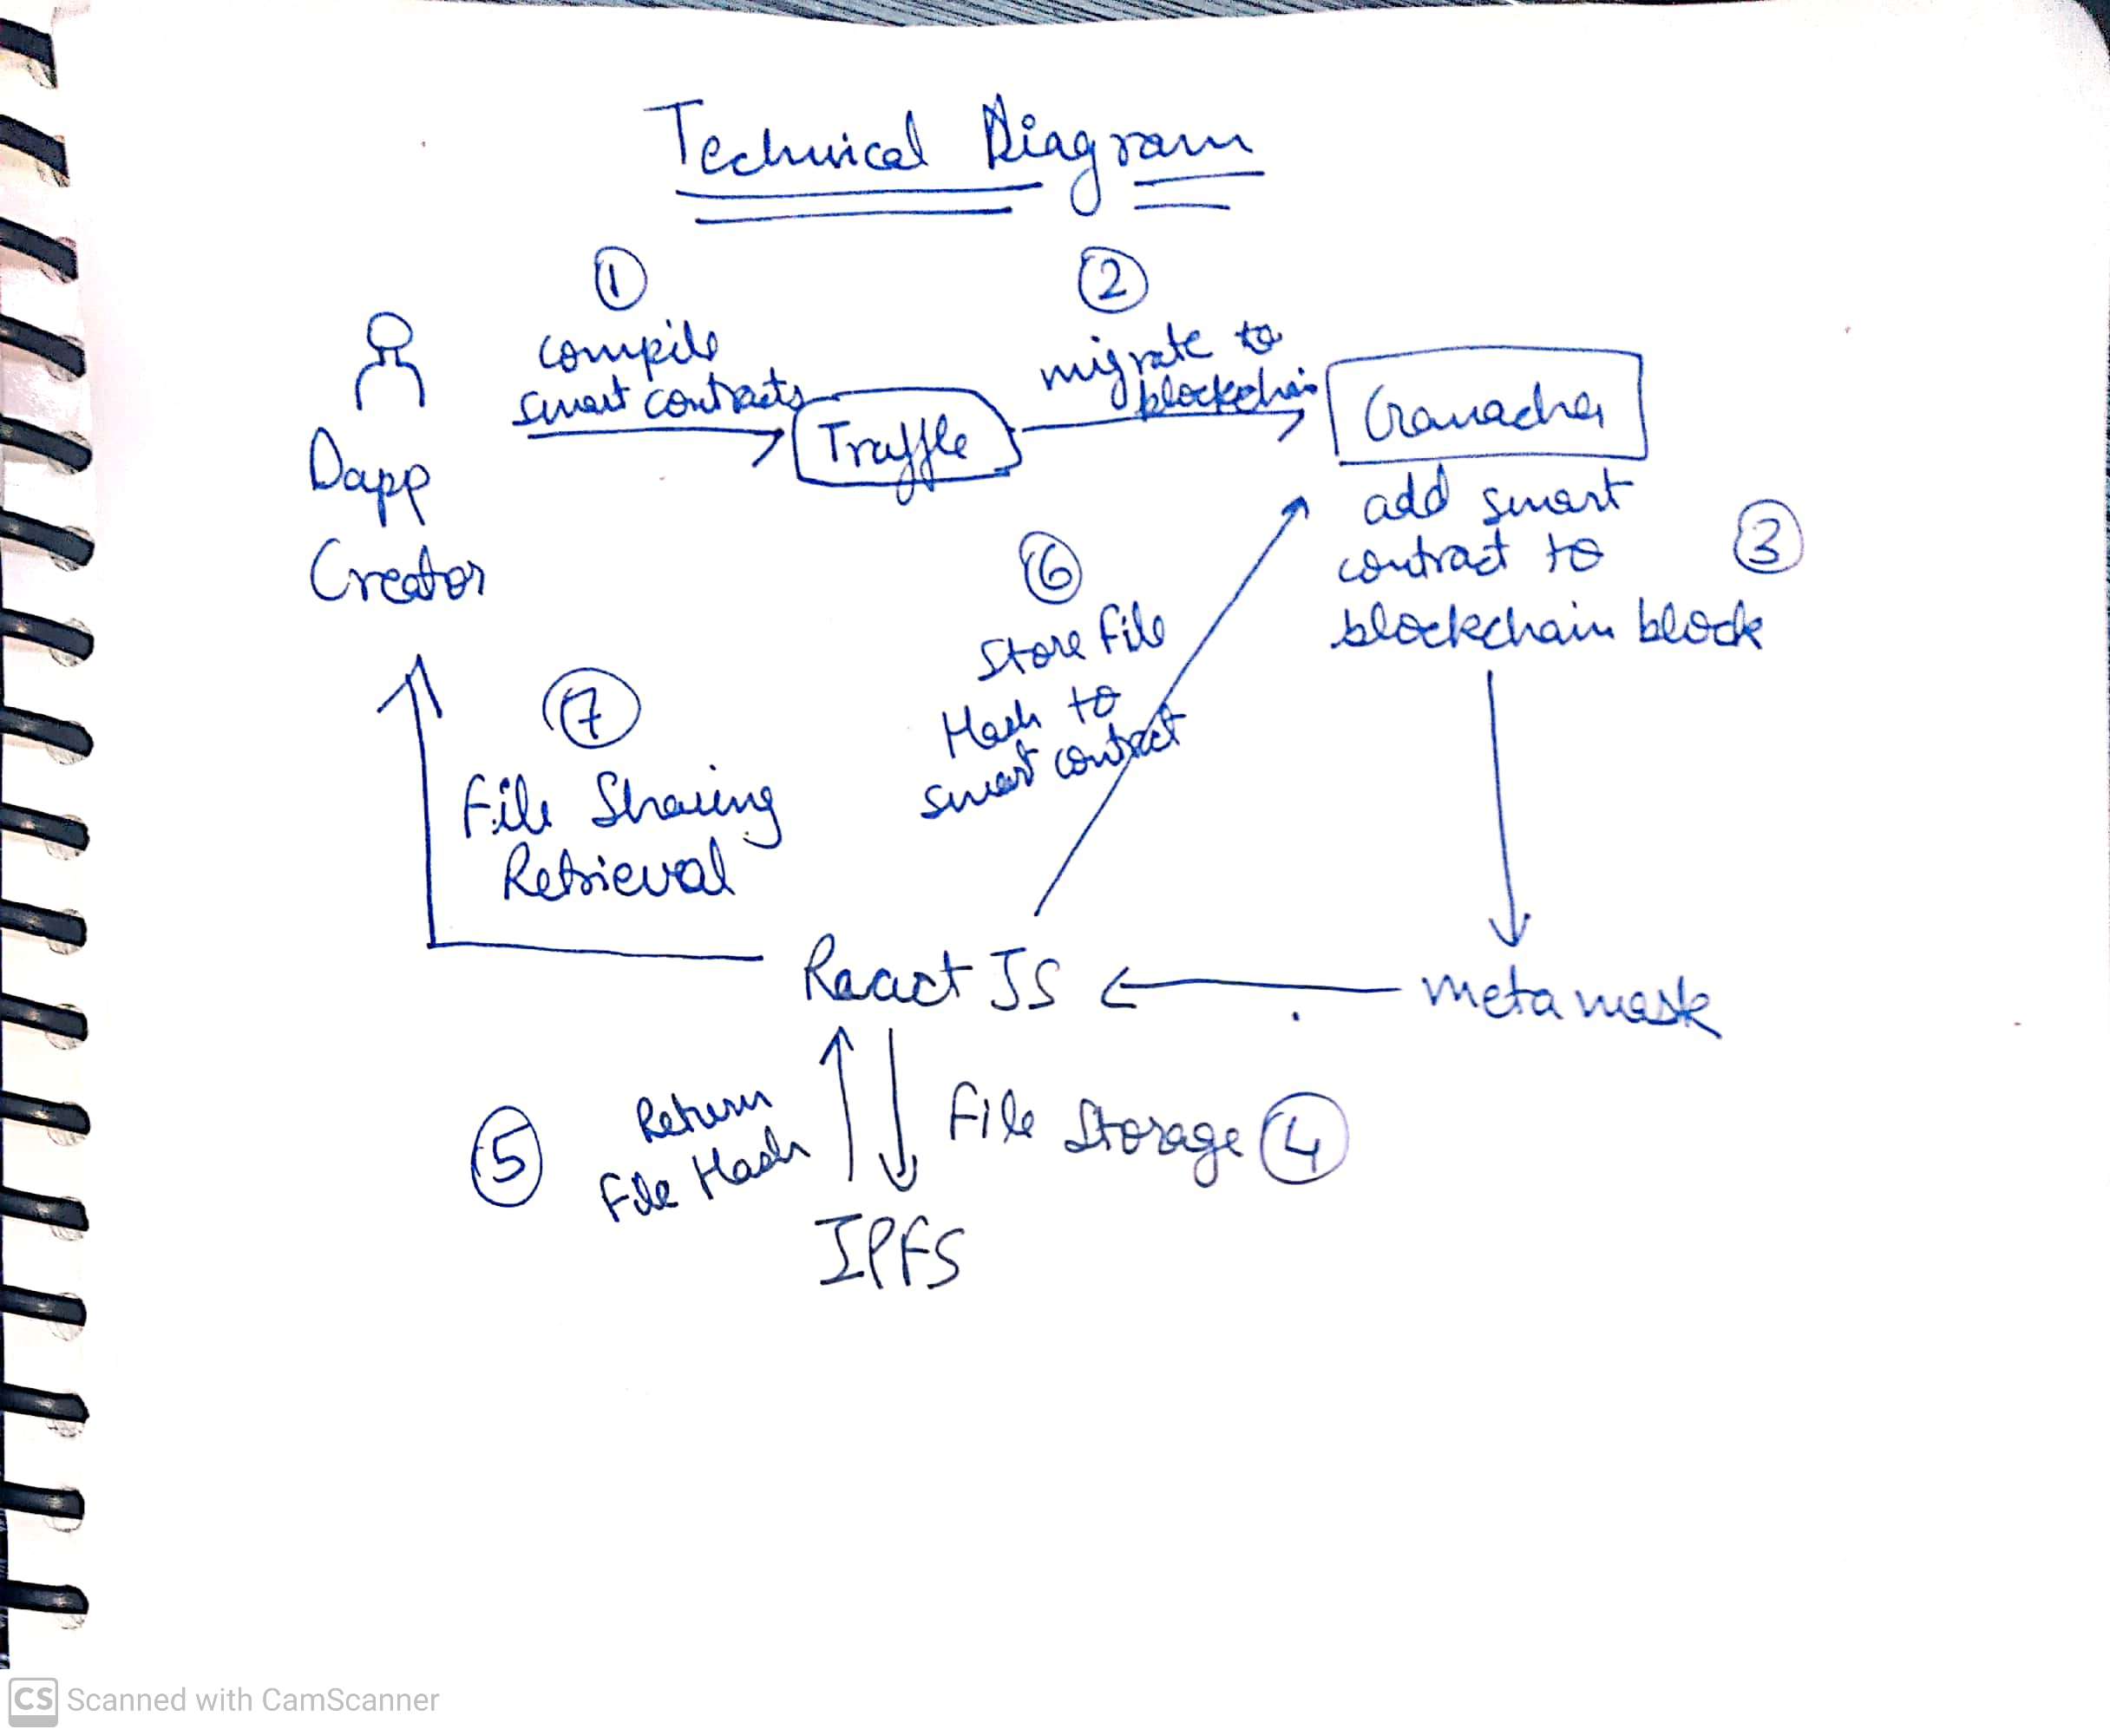 Technical Diagram
①
compile
smart contracts
②
migrate to
blockchain
Dapp
Creator
Truffle
Granache
add smart
contract to
blockchain block
③
⑥
Store File
Hash to
smart contract
⑦
File Sharing
Retrieval
React JS
metamask
⑤
Return
File Hash
File Storage ④
IPFS
CS Scanned with CamScanner